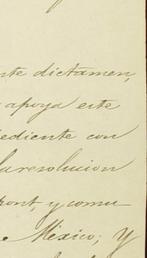 nte dictamen,
apoya este
ediente con
la resolucion
ront, y comu-
e México; y